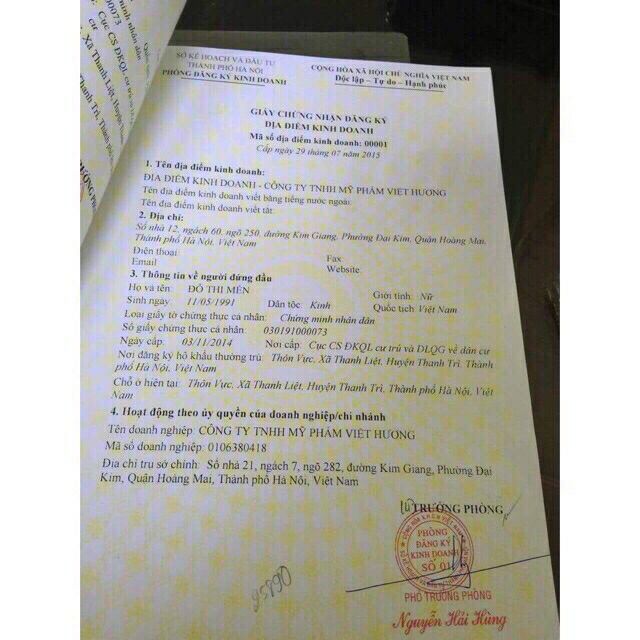 SỞ KẾ HOẠCH VÀ ĐẦU TƯ
THÀNH PHỐ HÀ NỘI
PHÒNG ĐĂNG KÝ KINH DOANH
CỘNG HÒA XÃ HỘI CHỦ NGHĨA VIỆT NAM
Độc lập - Tự do - Hạnh phúc
GIẤY CHỨNG NHẬN ĐĂNG KÝ
ĐỊA ĐIỂM KINH DOANH
Mã số địa điểm kinh doanh: 00001
Cấp ngày 29 tháng 07 năm 2015
1. Tên địa điểm kinh doanh:
ĐỊA ĐIỂM KINH DOANH - CÔNG TY TNHH MỸ PHẨM VIỆT HƯƠNG
Tên địa điểm kinh doanh viết bằng tiếng nước ngoài:
Tên địa điểm kinh doanh viết tắt:
2. Địa chỉ:
Số nhà 12, ngách 60, ngõ 250, đường Kim Giang, Phường Đại Kim, Quận Hoàng Mai,
Thành phố Hà Nội, Việt Nam
Điện thoại: Fax
Email Website:
3. Thông tin về người đứng đầu
Họ và tên: ĐỖ THỊ MẾN Giới tính: Nữ
Sinh ngày: 11/05/1991 Dân tộc: Kinh Quốc tịch: Việt Nam
Loại giấy tờ chứng thực cá nhân: Chứng minh nhân dân
Số giấy chứng thực cá nhân: 030191000073
Ngày cấp: 03/11/2014 Nơi cấp: Cục CS ĐKQL cư trú và DLQG về dân cư
Nơi đăng ký hộ khẩu thường trú: Thôn Vực, Xã Thanh Liệt, Huyện Thanh Trì, Thành
phố Hà Nội, Việt Nam
Chỗ ở hiện tại: Thôn Vực, Xã Thanh Liệt, Huyện Thanh Trì, Thành phố Hà Nội, Việt
Nam
4. Hoạt động theo ủy quyền của doanh nghiệp/chi nhánh
Tên doanh nghiệp: CÔNG TY TNHH MỸ PHẨM VIỆT HƯƠNG
Mã số doanh nghiệp: 0106380418
Địa chỉ trụ sở chính: Số nhà 21, ngách 7, ngõ 282, đường Kim Giang, Phường Đại
Kim, Quận Hoàng Mai, Thành phố Hà Nội, Việt Nam
TRƯỞNG PHÒNG
PHÒNG
ĐĂNG KÝ
KINH DOANH
SỐ 01
PHÓ TRƯỞNG PHÒNG
Nguyễn Hải Hùng